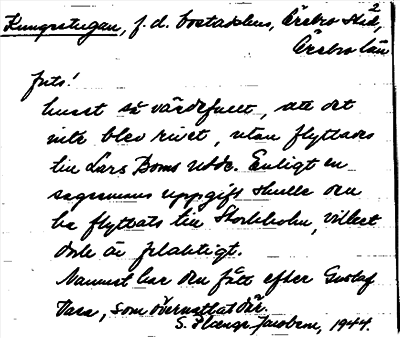 2
Kungsstugan, f.d. bostadshus, Örebro Sked,
Örebro län
huset så värdefullt, att det
inte blev rivet, utan flyttades
till Lars Boms udde. Enligt en
sagesmans uppgift skulle den
ha flyttats till Stockholm, vilket
dock är felaktigt.
Namnet har den fått efter Gustaf
Vasa, som övernattat där.
S. Jacobson, 1944.